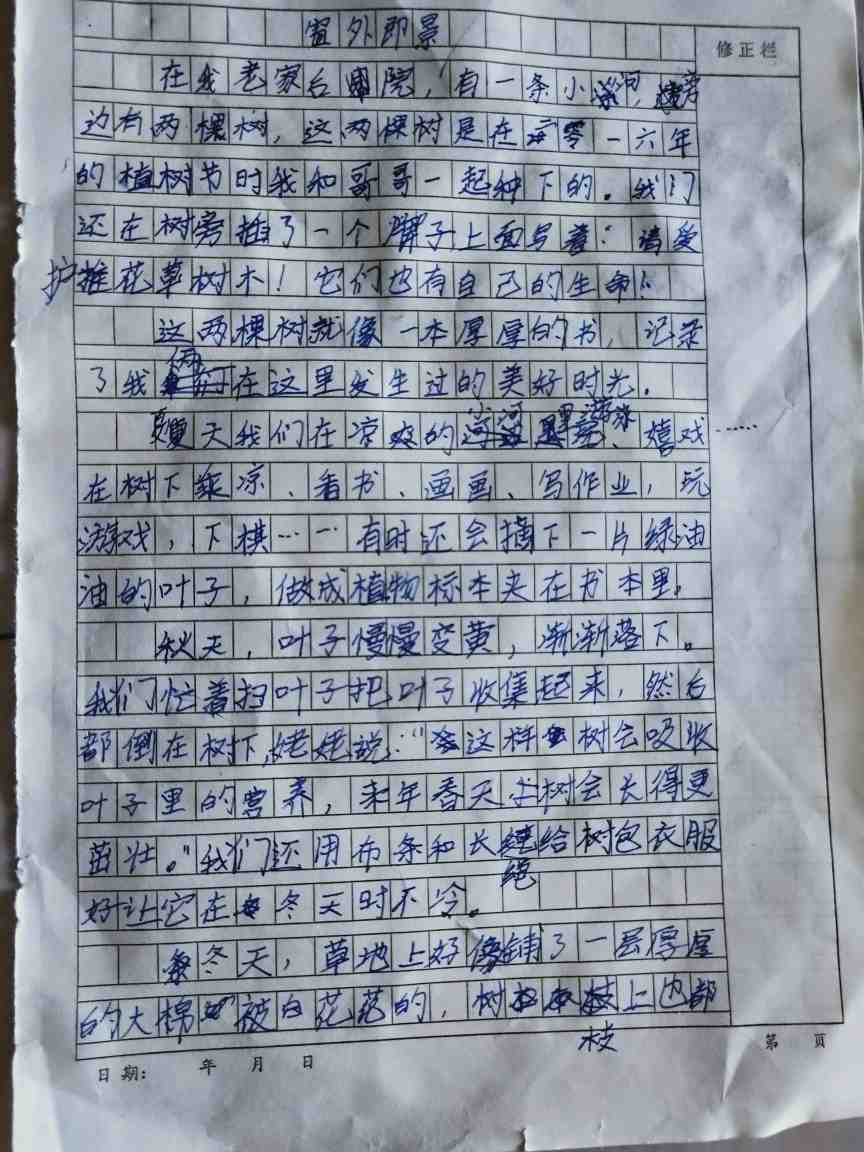 窗外即景
修正栏
在我老家后院,有一条小河,旁
边有两棵树,这两棵树是在二零一六年
的植树节时我和哥哥一起种下的。我们
还在树旁插了一个牌子上面写着:请爱
护花草树木!它们也有自己的生命!
这两棵树就像一本厚厚的书,记录
了我俩在这里发生过的美好时光.
夏天我们在凉爽的小河里游泳、嬉戏……
在树下乘凉、看书、画画、写作业,玩
游戏,下棋……有时还会摘下一片绿油
油的叶子,做成植物标本夹在书本里。
秋天,叶子慢慢变黄,渐渐落下。
我们忙着扫叶子把叶子收集起来,然后
都倒在树下,姥姥说:“这样树会吸收
叶子里的营养,来年春天树会长得更
茁壮。”我们还用布条和长绳给树包衣服
好让它在冬天时不冷。
冬天,草地上好像铺了一层厚厚
的大棉被白花花的,树枝上也都
日期: 年 月 日
第 页